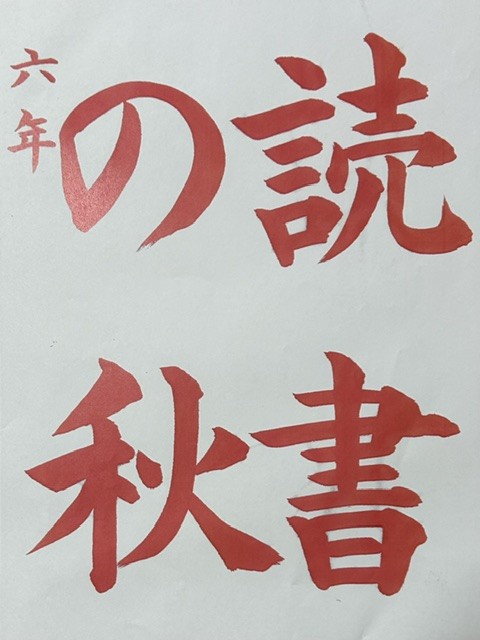 読書
の秋
六年